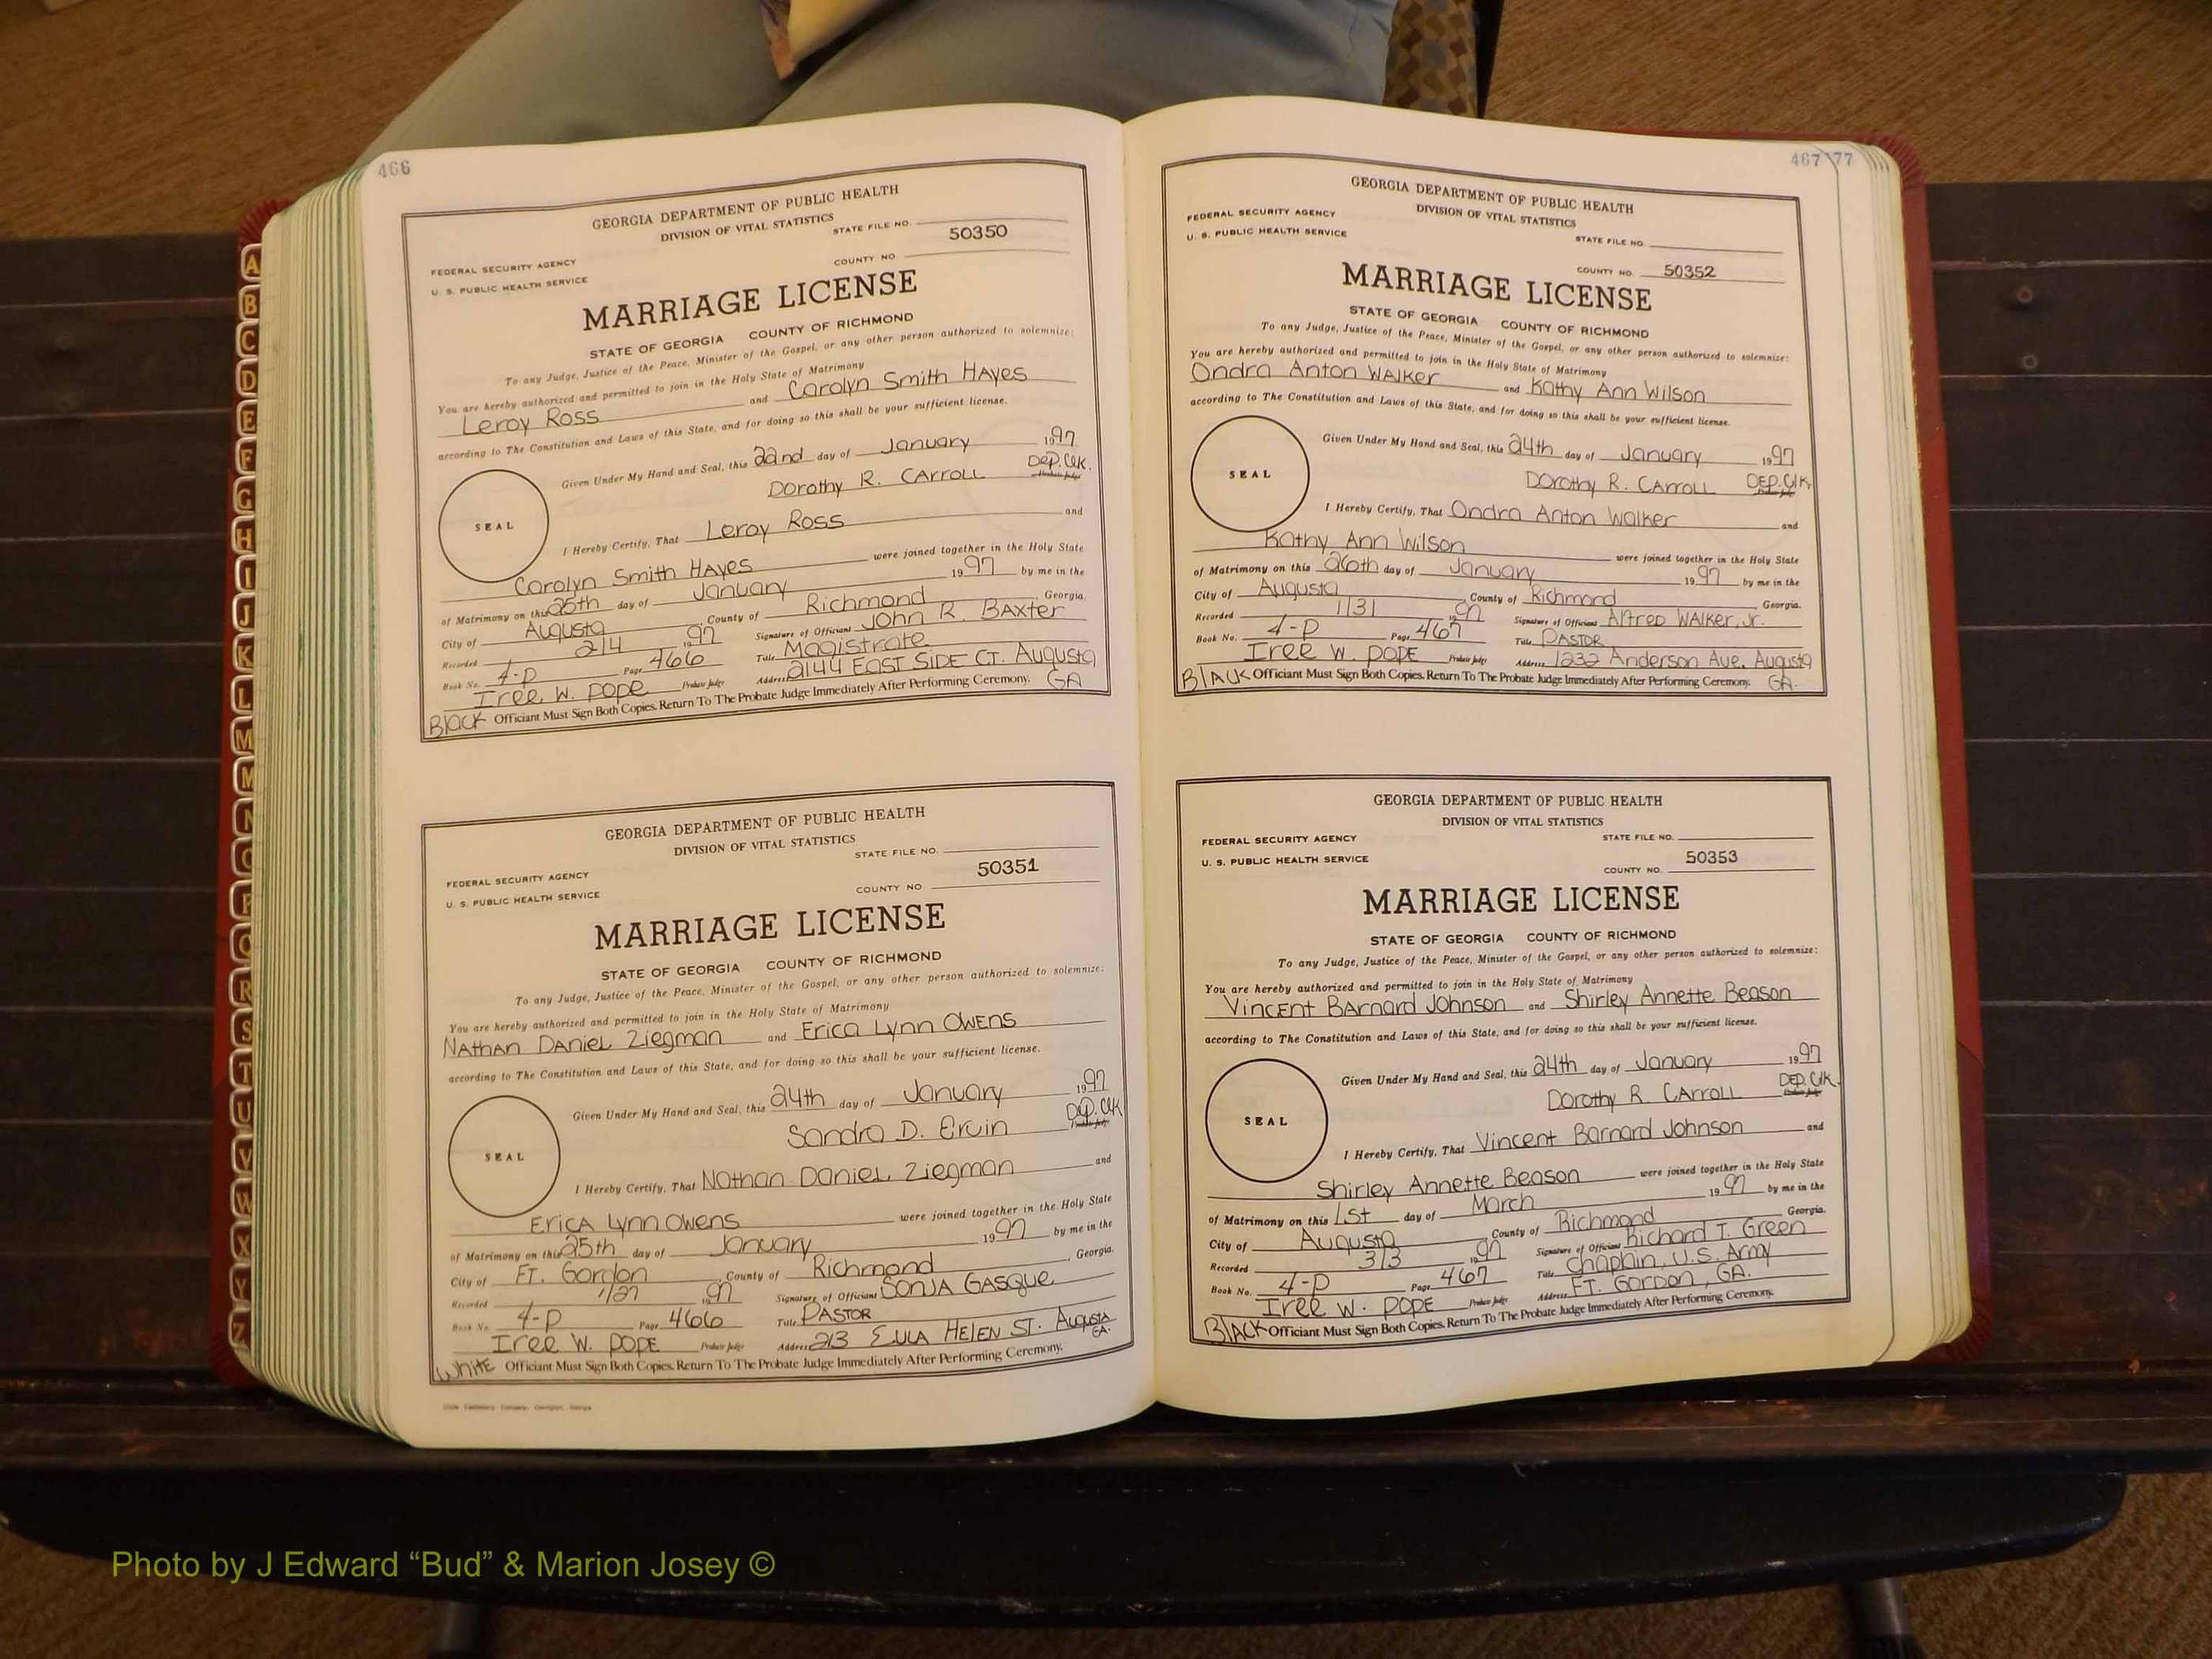 466
GEORGIA DEPARTMENT OF PUBLIC HEALTH
DIVISION OF VITAL STATISTICS
STATE FILE NO. 50350
FEDERAL SECURITY AGENCY
COUNTY NO.
U. S. PUBLIC HEALTH SERVICE
MARRIAGE LICENSE
STATE OF GEORGIA COUNTY OF RICHMOND
To any Judge, Justice of the Peace, Minister of the Gospel, or any other person authorized to solemnize:
You are hereby authorized and permitted to join in the Holy State of Matrimony
Leroy Ross and Carolyn Smith HAyes
according to The Constitution and Laws of this State, and for doing so this shall be your sufficient license.
Given Under My Hand and Seal, this 22nd day of January 1997
Dorothy R. CArroll Dep. Clk.
Probate Judge
SEAL
I Hereby Certify, That Leroy Ross and
Carolyn Smith HAyes were joined together in the Holy State
of Matrimony on this 25th day of January 1997 by me in the
City of Augusta County of Richmond, Georgia.
Recorded 2/4 1997 Signature of Officiant John R. BAxter
Book No. 4-P Page 466 Title Magistrate
Iree W. Pope Probate Judge Address 2144 EAST SIDE CT. Augusta GA
Black Officiant Must Sign Both Copies. Return To The Probate Judge Immediately After Performing Ceremony.
GEORGIA DEPARTMENT OF PUBLIC HEALTH
DIVISION OF VITAL STATISTICS
STATE FILE NO.
FEDERAL SECURITY AGENCY
50351
U. S. PUBLIC HEALTH SERVICE
COUNTY NO.
MARRIAGE LICENSE
STATE OF GEORGIA COUNTY OF RICHMOND
To any Judge, Justice of the Peace, Minister of the Gospel, or any other person authorized to solemnize:
You are hereby authorized and permitted to join in the Holy State of Matrimony
NAthAn DAnieL Ziegman and Erica Lynn Owens
according to The Constitution and Laws of this State, and for doing so this shall be your sufficient license.
Given Under My Hand and Seal, this 24th day of January 1997
Sandra D. Ervin Dep. Clk
Probate Judge
SEAL
I Hereby Certify, That Nathan DanieL Ziegman and
EricA Lynn Owens were joined together in the Holy State
of Matrimony on this 25th day of January 1997 by me in the
City of FT. Gordon, County of Richmond, Georgia.
Recorded 1/27 1997 Signature of Officiant SONJA GASQue
Book No. 4-P Page 466 Title PASTOR
Iree W. POPE Probate Judge Address 213 EULA HELEN ST. AugustA GA.
White Officiant Must Sign Both Copies. Return To The Probate Judge Immediately After Performing Ceremony.
467 77
GEORGIA DEPARTMENT OF PUBLIC HEALTH
DIVISION OF VITAL STATISTICS
FEDERAL SECURITY AGENCY
STATE FILE NO.
U. S. PUBLIC HEALTH SERVICE
COUNTY NO. 50352
MARRIAGE LICENSE
STATE OF GEORGIA COUNTY OF RICHMOND
To any Judge, Justice of the Peace, Minister of the Gospel, or any other person authorized to solemnize:
You are hereby authorized and permitted to join in the Holy State of Matrimony
Ondra Anton WAlker and Kathy Ann Wilson
according to The Constitution and Laws of this State, and for doing so this shall be your sufficient license.
Given Under My Hand and Seal, this 24th day of January 1997
Dorothy R. CArroll DEP. Clk.
Probate Judge
SEAL
I Hereby Certify, That Ondra Anton Walker and
Kathy Ann Wilson were joined together in the Holy State
of Matrimony on this 26th day of January 1997 by me in the
City of Augusta, County of Richmond Georgia.
Recorded 1/31 97 Signature of Officiant Alfred WAlker, Jr.
Book No. 4-P Page 467 Title PASTOR
Iree W. POPE Probate Judge Address 1232 Anderson Ave. Augusta GA.
BlAck Officiant Must Sign Both Copies. Return To The Probate Judge Immediately After Performing Ceremony.
GEORGIA DEPARTMENT OF PUBLIC HEALTH
DIVISION OF VITAL STATISTICS
FEDERAL SECURITY AGENCY
STATE FILE NO.
U. S. PUBLIC HEALTH SERVICE
COUNTY NO. 50353
MARRIAGE LICENSE
STATE OF GEORGIA COUNTY OF RICHMOND
To any Judge, Justice of the Peace, Minister of the Gospel, or any other person authorized to solemnize:
You are hereby authorized and permitted to join in the Holy State of Matrimony
Vincent BArnard Johnson and Shirley Annette Beason
according to The Constitution and Laws of this State, and for doing so this shall be your sufficient license.
Given Under My Hand and Seal, this 24th day of January 1997
Dorothy R. CArroll DEP. Clk.
Probate Judge
SEAL
I Hereby Certify, That Vincent Barnard Johnson and
Shirley Annette Beason were joined together in the Holy State
of Matrimony on this 1st day of March 1997 by me in the
City of Augusta County of Richmond, Georgia.
Recorded 3/3 1997 Signature of Officiant Richard T. Green
Book No. 4-P Page 467 Title Chaplain, U.S. Army
Iree W. POPE Probate Judge Address FT. GORDON, GA.
BlAck Officiant Must Sign Both Copies. Return To The Probate Judge Immediately After Performing Ceremony.
A
B
C
D
E
F
G
H
I
J
K
L
M
M
N
O
P
Q
R
S
T
U
V
W
X
Y
Z
Photo by J Edward “Bud” & Marion Josey ©